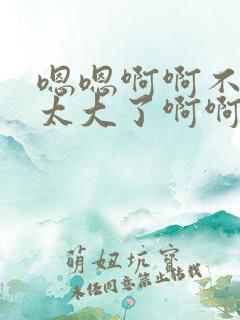 嗯嗯啊啊不
太大了啊啊
萌妞坑寶
未经同意禁止转载